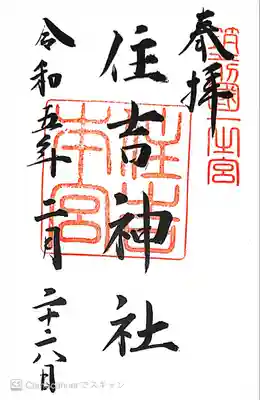 筑前國一之宮
奉拝
住吉神社
住吉本宮
令和五年二月二十六日
CS CamScannerでスキャン